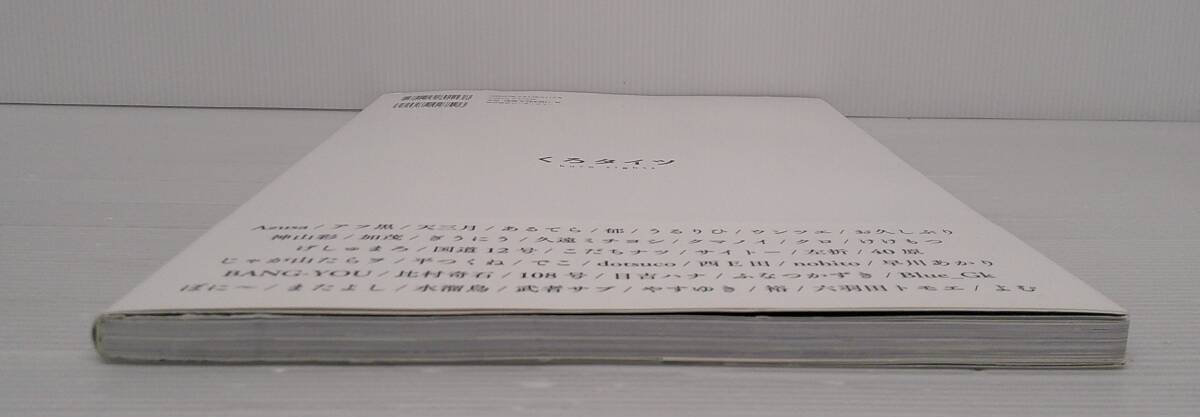 くろタイツ
kuro tights
Azusa/アフ黒/天三月/あるてら/郁/うるりひ/ウンツエ/お久しぶり
神山彩/加茂/ぎうにう/久遠ミチヨシ/クマノイ/クロ/けけもつ
げしゅまろ/国道12号/こだちナツ/サイトー/左折/40原
じゃが山たらヲ/平つくね/でこ/dotsuco/西E田/nohito/早川あかり
BANG-YOU/比村奇石/108号/日吉ハナ/ふなつかずき/Blue_Gk
ぽに〜/またよし/水溜鳥/武者サブ/やすゆき/裕/六羽田トモエ/よむ